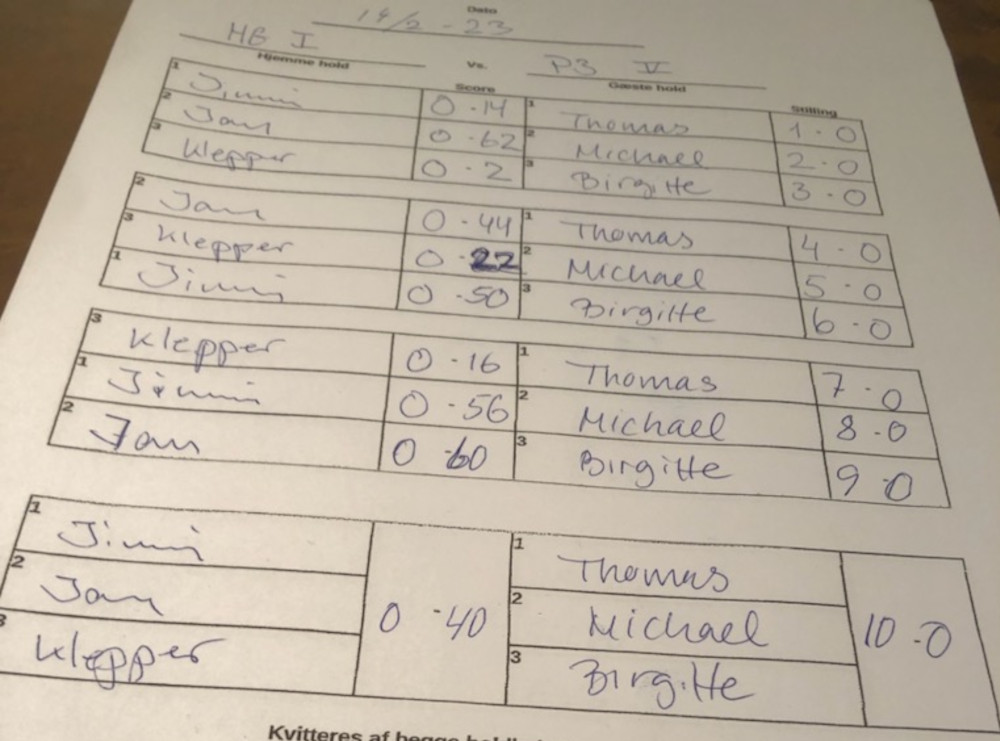 Dato
14/2 - 23
HG I Vs. P3 V
Hjemme hold Gæste hold
Score Stilling
1 Jimmi 0 - 14 1 Thomas 1 - 0
2 Jan 0 - 62 2 Michael 2 - 0
3 Klepper 0 - 2 3 Birgitte 3 - 0
2 Jan 0 - 44 1 Thomas 4 - 0
3 Klepper 0 - 22 2 Michael 5 - 0
1 Jimmi 0 - 50 3 Birgitte 6 - 0
3 Klepper 0 - 16 1 Thomas 7 - 0
1 Jimmi 0 - 56 2 Michael 8 - 0
2 Jan 0 - 60 3 Birgitte 9 - 0
1 Jimmi 1 Thomas
2 Jan 0 - 40 2 Michael 10 - 0
3 Klepper 3 Birgitte
Kvitteres af begge